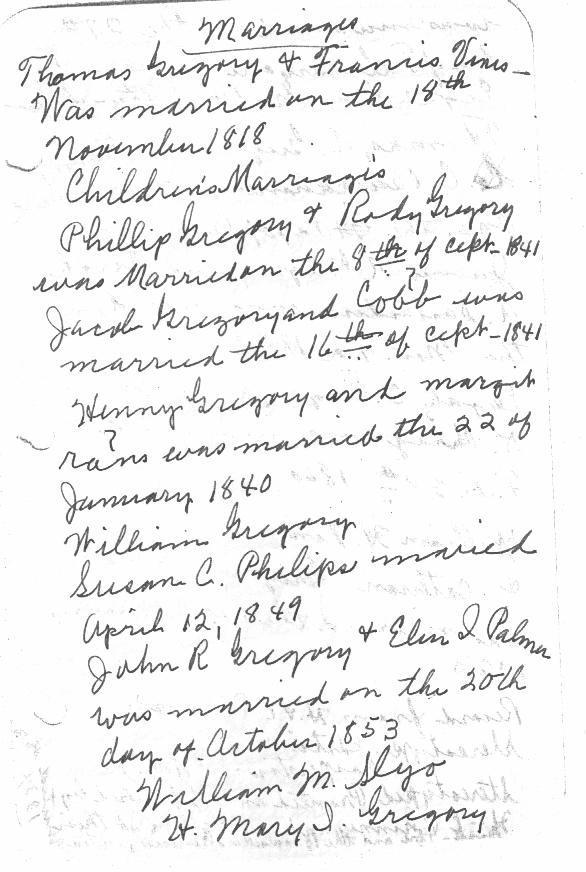 Marriages
Thomas Gregory & Francis Vines
Was married on the 18th
November 1818
Children's Marriagis
Phillip Gregory & Rody Gregory
was Married on the 8th of cept - 1841
Jacob Gregory and Cobb ? was
married the 16th of cept - 1841
Henny Gregory and margit
rans ? was married the 22 of
January 1840
William Gregory
Susan C. Philips maried
April 12, 1849
John R Gregory & Elen I Palmer
was married on the 20th
day of Actober 1853
William M. Slyo
H. Mary I. Gregory